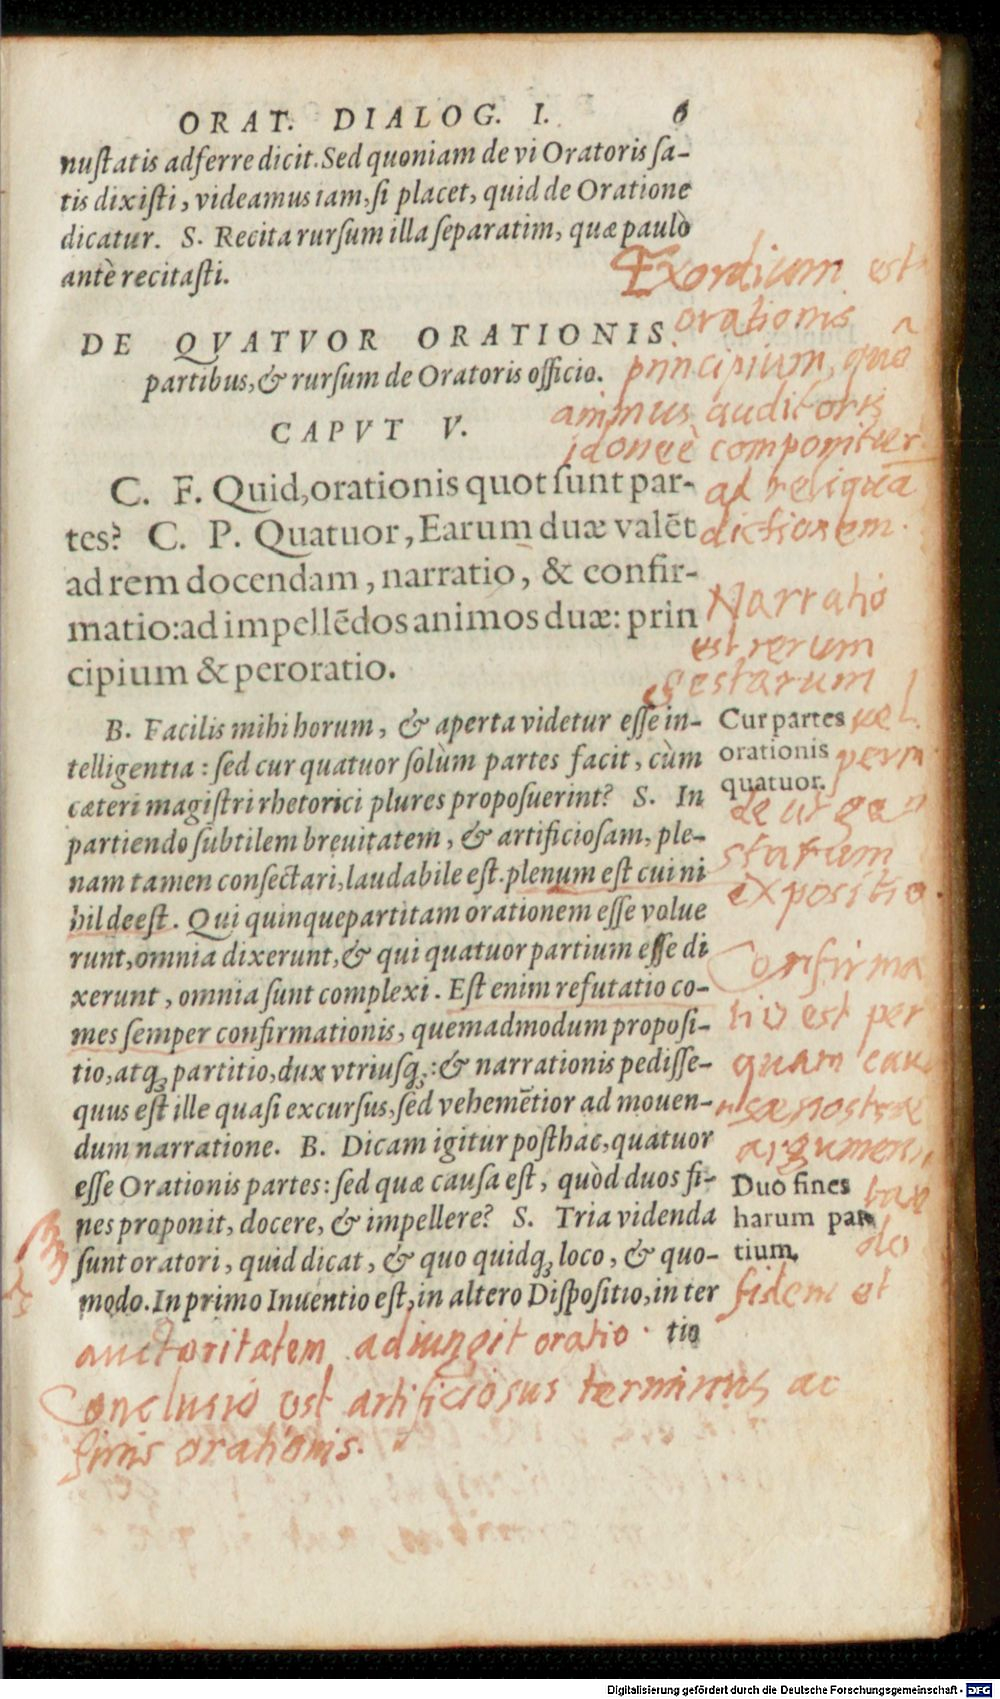 ORAT. DIALOG. I. 6
nustatis adferre dicit. Sed quoniam de vi Oratoris sa-
tis dixisti, videamus iam, si placet, quid de Oratione
dicatur. S. Recita rursum illa separatim, quæ paulò
antè recitasti.
DE QVATVOR ORATIONIS
partibus, & rursum de Oratoris officio.
CAPVT V.
C. F. Quid, orationis quot sunt par-
tes? C. P. Quatuor, Earum duæ valēt
ad rem docendam, narratio, & confir-
matio: ad impellēdos animos duæ: prin
cipium & peroratio.
B. Facilis mihi horum, & aperta videtur esse in-
telligentia: sed cur quatuor solùm partes facit, cùm
cæteri magistri rhetorici plures proposuerint? S. In
partiendo subtilem breuitatem, & artificiosam, ple-
nam tamen consectari, laudabile est. plenum est cui ni
hil deest. Qui quinquepartitam orationem esse volue
runt, omnia dixerunt, & qui quatuor partium esse di
xerunt, omnia sunt complexi. Est enim refutatio co-
mes semper confirmationis, quemadmodum proposi-
tio, atq; partitio, dux vtriusq;: & narrationis pedisse-
quus est ille quasi excursus, sed vehemētior ad mouen-
dum narratione. B. Dicam igitur posthac, quatuor
esse Orationis partes: sed quæ causa est, quòd duos fi-
nes proponit, docere, & impellere? S. Tria videnda
sunt oratori, quid dicat, & quo quidq; loco, & quo-
modo. In primo Inuentio est, in altero Dispositio, in ter
tio
Cur partes
orationis
quatuor.
Duo fines
harum par
tium.
Exordium est
orationis
principium, quō
animus auditoris
idoneè componitur
ad reliquā
dictionem.
Narratio
est rerum
gestarum
vel
star um
expositio.
Confirma
tio est per
quam cau
sæ nostræ
argumen
tan
do
fidem et
auctoritatem adiungit oratio.
Conclusio est artificiosus terminus ac
finis orationis.
Digitalisierung gefördert durch die Deutsche Forschungsgemeinschaft - DFG